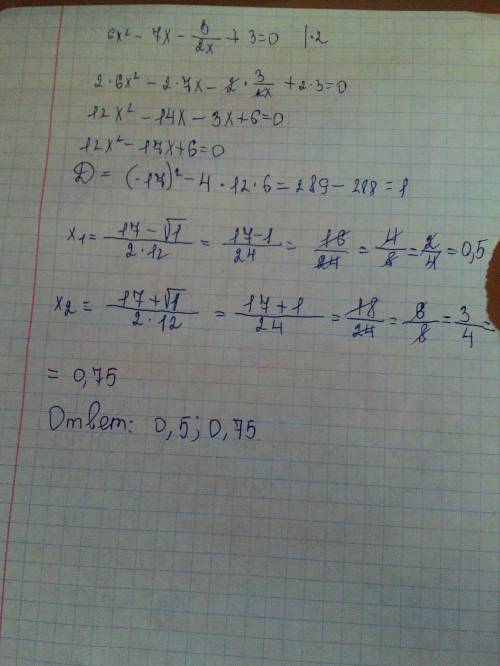 6x² - 7x - 3/2x + 3 = 0 |·2
2·6x² - 2·7x - 2·3/2x + 2·3=0
12x² - 14x - 3x + 6=0
12x² - 17x + 6=0
D = (-17)² - 4·12·6 = 289 - 288 = 1
x₁ = (17 - √1)/(2·12) = (17-1)/24 = 16/24 = 4/8 = 2/4 = 0,5
x₂ = (17 + √1)/(2·12) = (17+1)/24 = 18/24 = 6/8 = 3/4 =
= 0,75
Ответ: 0,5; 0,75.